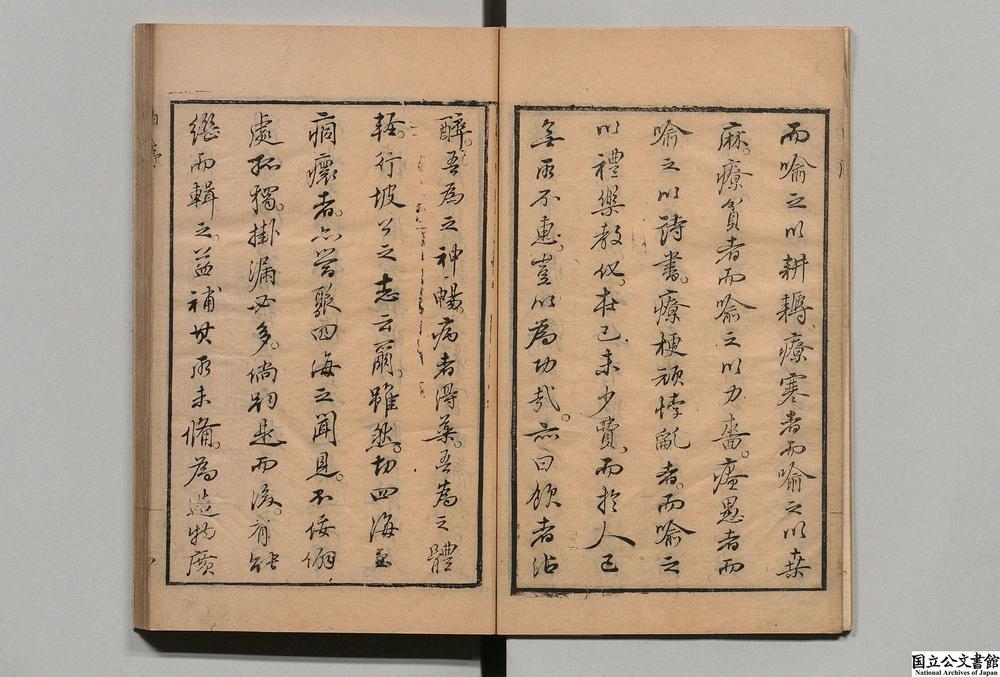 而喻之以耕耨、療寒者而喻之以桑
麻。療貧者而喻之以力嗇。療愚者而
喻之以詩書。療梗頑悖戾者。而喻之
以禮樂教化。在己未少費、而於人已
無所不惠。豈以為功哉。亦曰飲者沾
醉。吾為之神暢。病者得藥。吾為之體
輕。行坡公之志云爾。雖然。切四海
痌瘝者。必嘗聚四海之聞見。不佞僻
處孤獨。掛漏必多。倘
是而後。有能
繼而輯之。益補其所未備。為造物廣
国立公文書館
National Archives of Japan